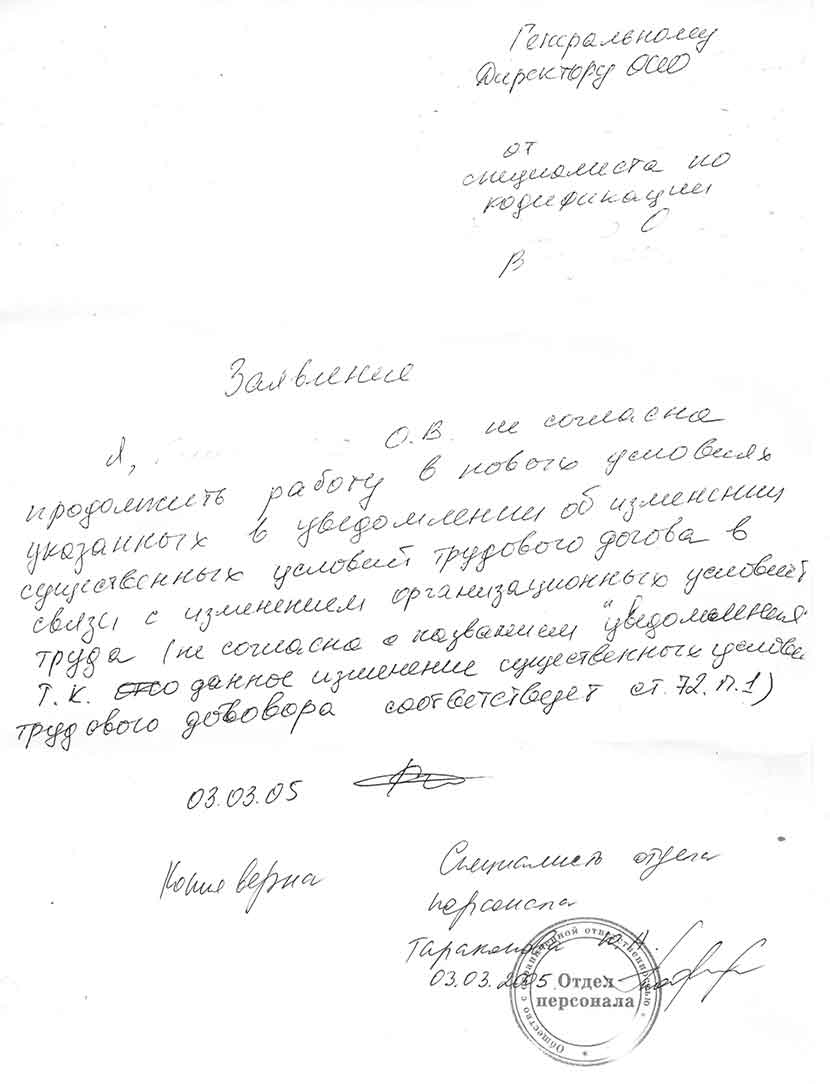 Генеральному
Директору ООО
от
специалиста по
кодификации
О
В
Заявление
Я, О.В. не согласна
продолжить работу в новых условиях
указанных в уведомлении об изменении
существенных условий трудового догова в
связи с изменением организационных условий
труда (не согласна с названием "уведомления"
т.к. это данное изменение существенных услови
трудового договора соответствует ст.72.п.1)
03.03.05
Копия верна
Специалист отдела
персонала
Тараканова Ю.Н.
03.03.2005
Общество с ограниченной ответственностью *
Отдел
персонала